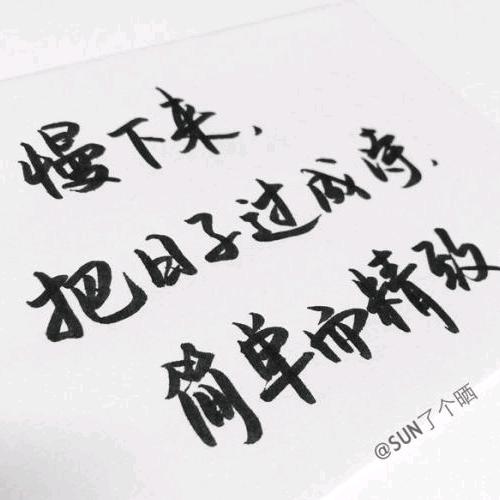 慢下来，
把日子过成诗，
简单而精致
@SUN了个晒